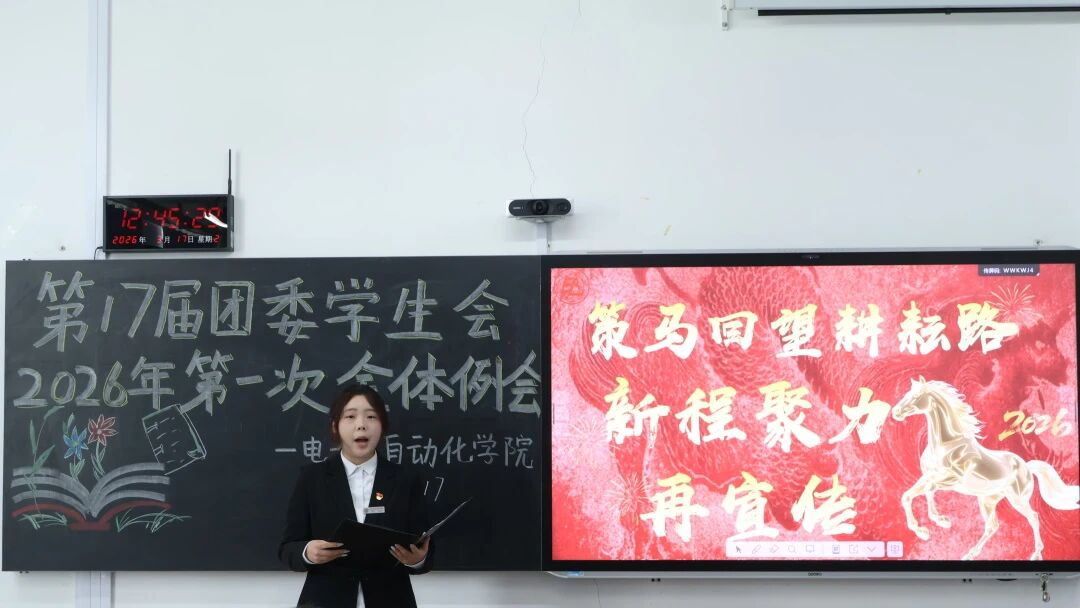 12:45:29
2026年 3月 17日 星期2
第17届团委学生会
2026年第一次全体例会
自动化学院
17
传屏码: WWKWJ4
策马回望耕耘路
新程聚力
再宣传
2026